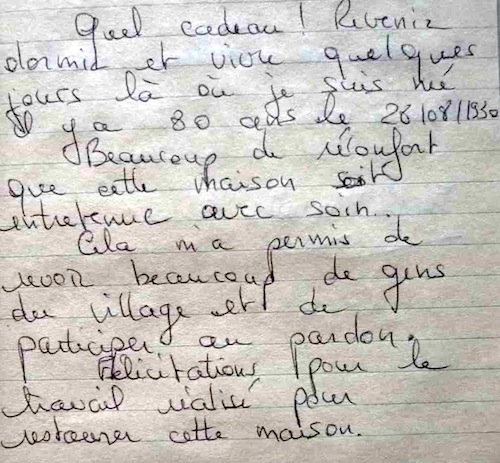 Quel cadeau ! Revenir
dormir et vivre quelques
jours là où je suis né
Il y a 80 ans le 26/08/1930
Beaucoup de réconfort
que cette maison soit
entretenue avec soin..
Cela m'a permis de
revoir beaucoup de gens
du village et de
participer au pardon.
Félicitations pour le
travail réalisé pour
restaurer cette maison.